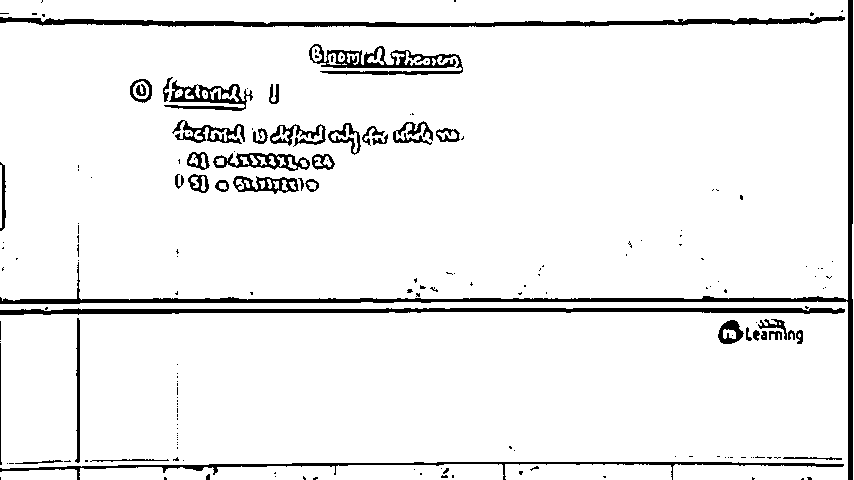 Binomial Theorem
① factorial : !
factorial is defined only for whole no.
4! = 4x3x2x1 = 24
5! = 5x4x3x2x1 =
Learning